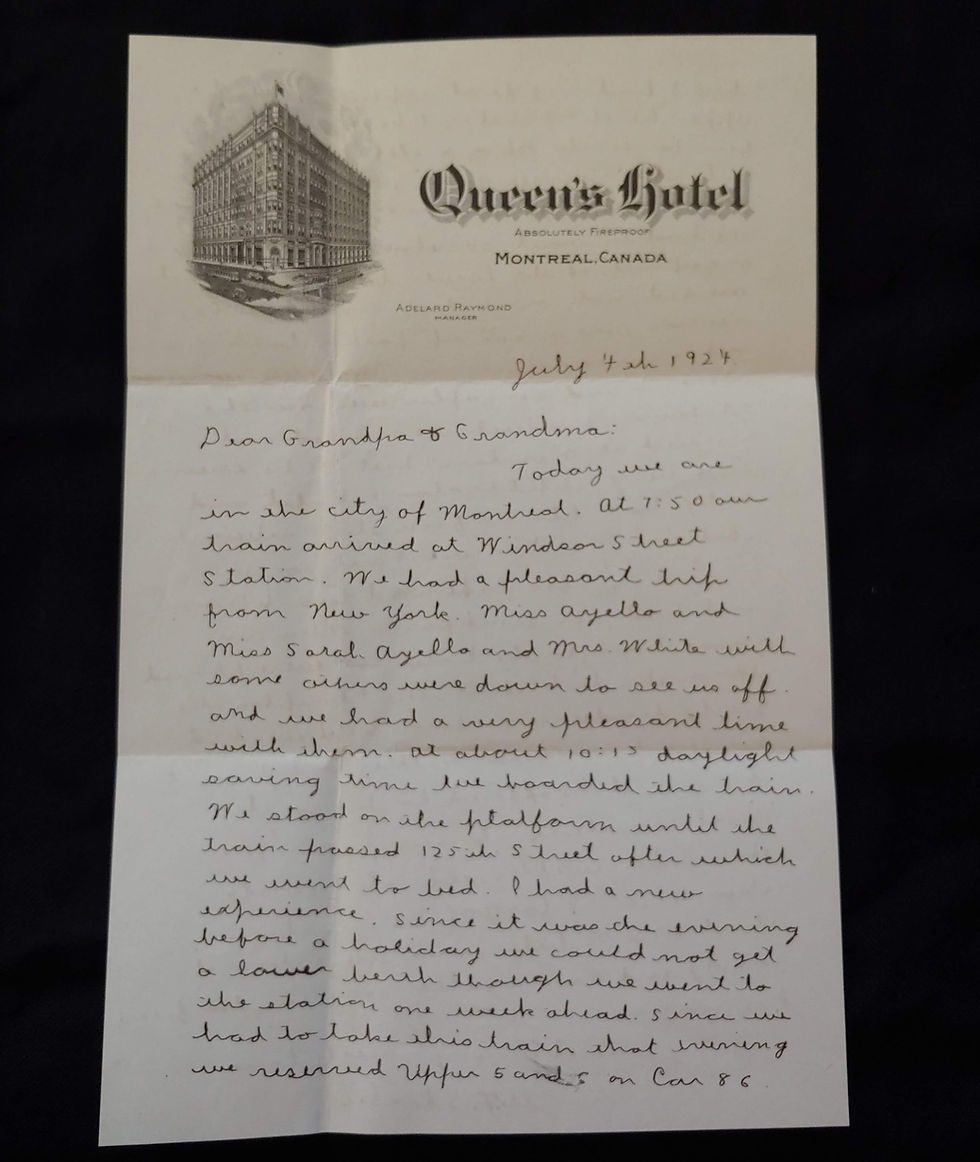 Queen's Hotel
ABSOLUTELY FIREPROOF
MONTREAL, CANADA
ADELARD RAYMOND
MANAGER
July 4th 1924
Dear Grandpa & Grandma:
Today we are
in the city of Montreal. At 7:50 our
train arrived at Windsor Street
Station. We had a pleasant trip
from New York. Miss Ayello and
Miss Sarah Ayello and Mrs. White with
some others were down to see us off.
and we had a very pleasant time
with them. at about 10:15 daylight
saving time we boarded the train.
We stood on the platform until the
train passed 125th Street after which
we went to bed. I had a new
experience. Since it was the evening
before a holiday we could not get
a lower berth though we went to
the station one week ahead. Since we
had to take this train that evening
we reserved Upper 5 and on Car 86